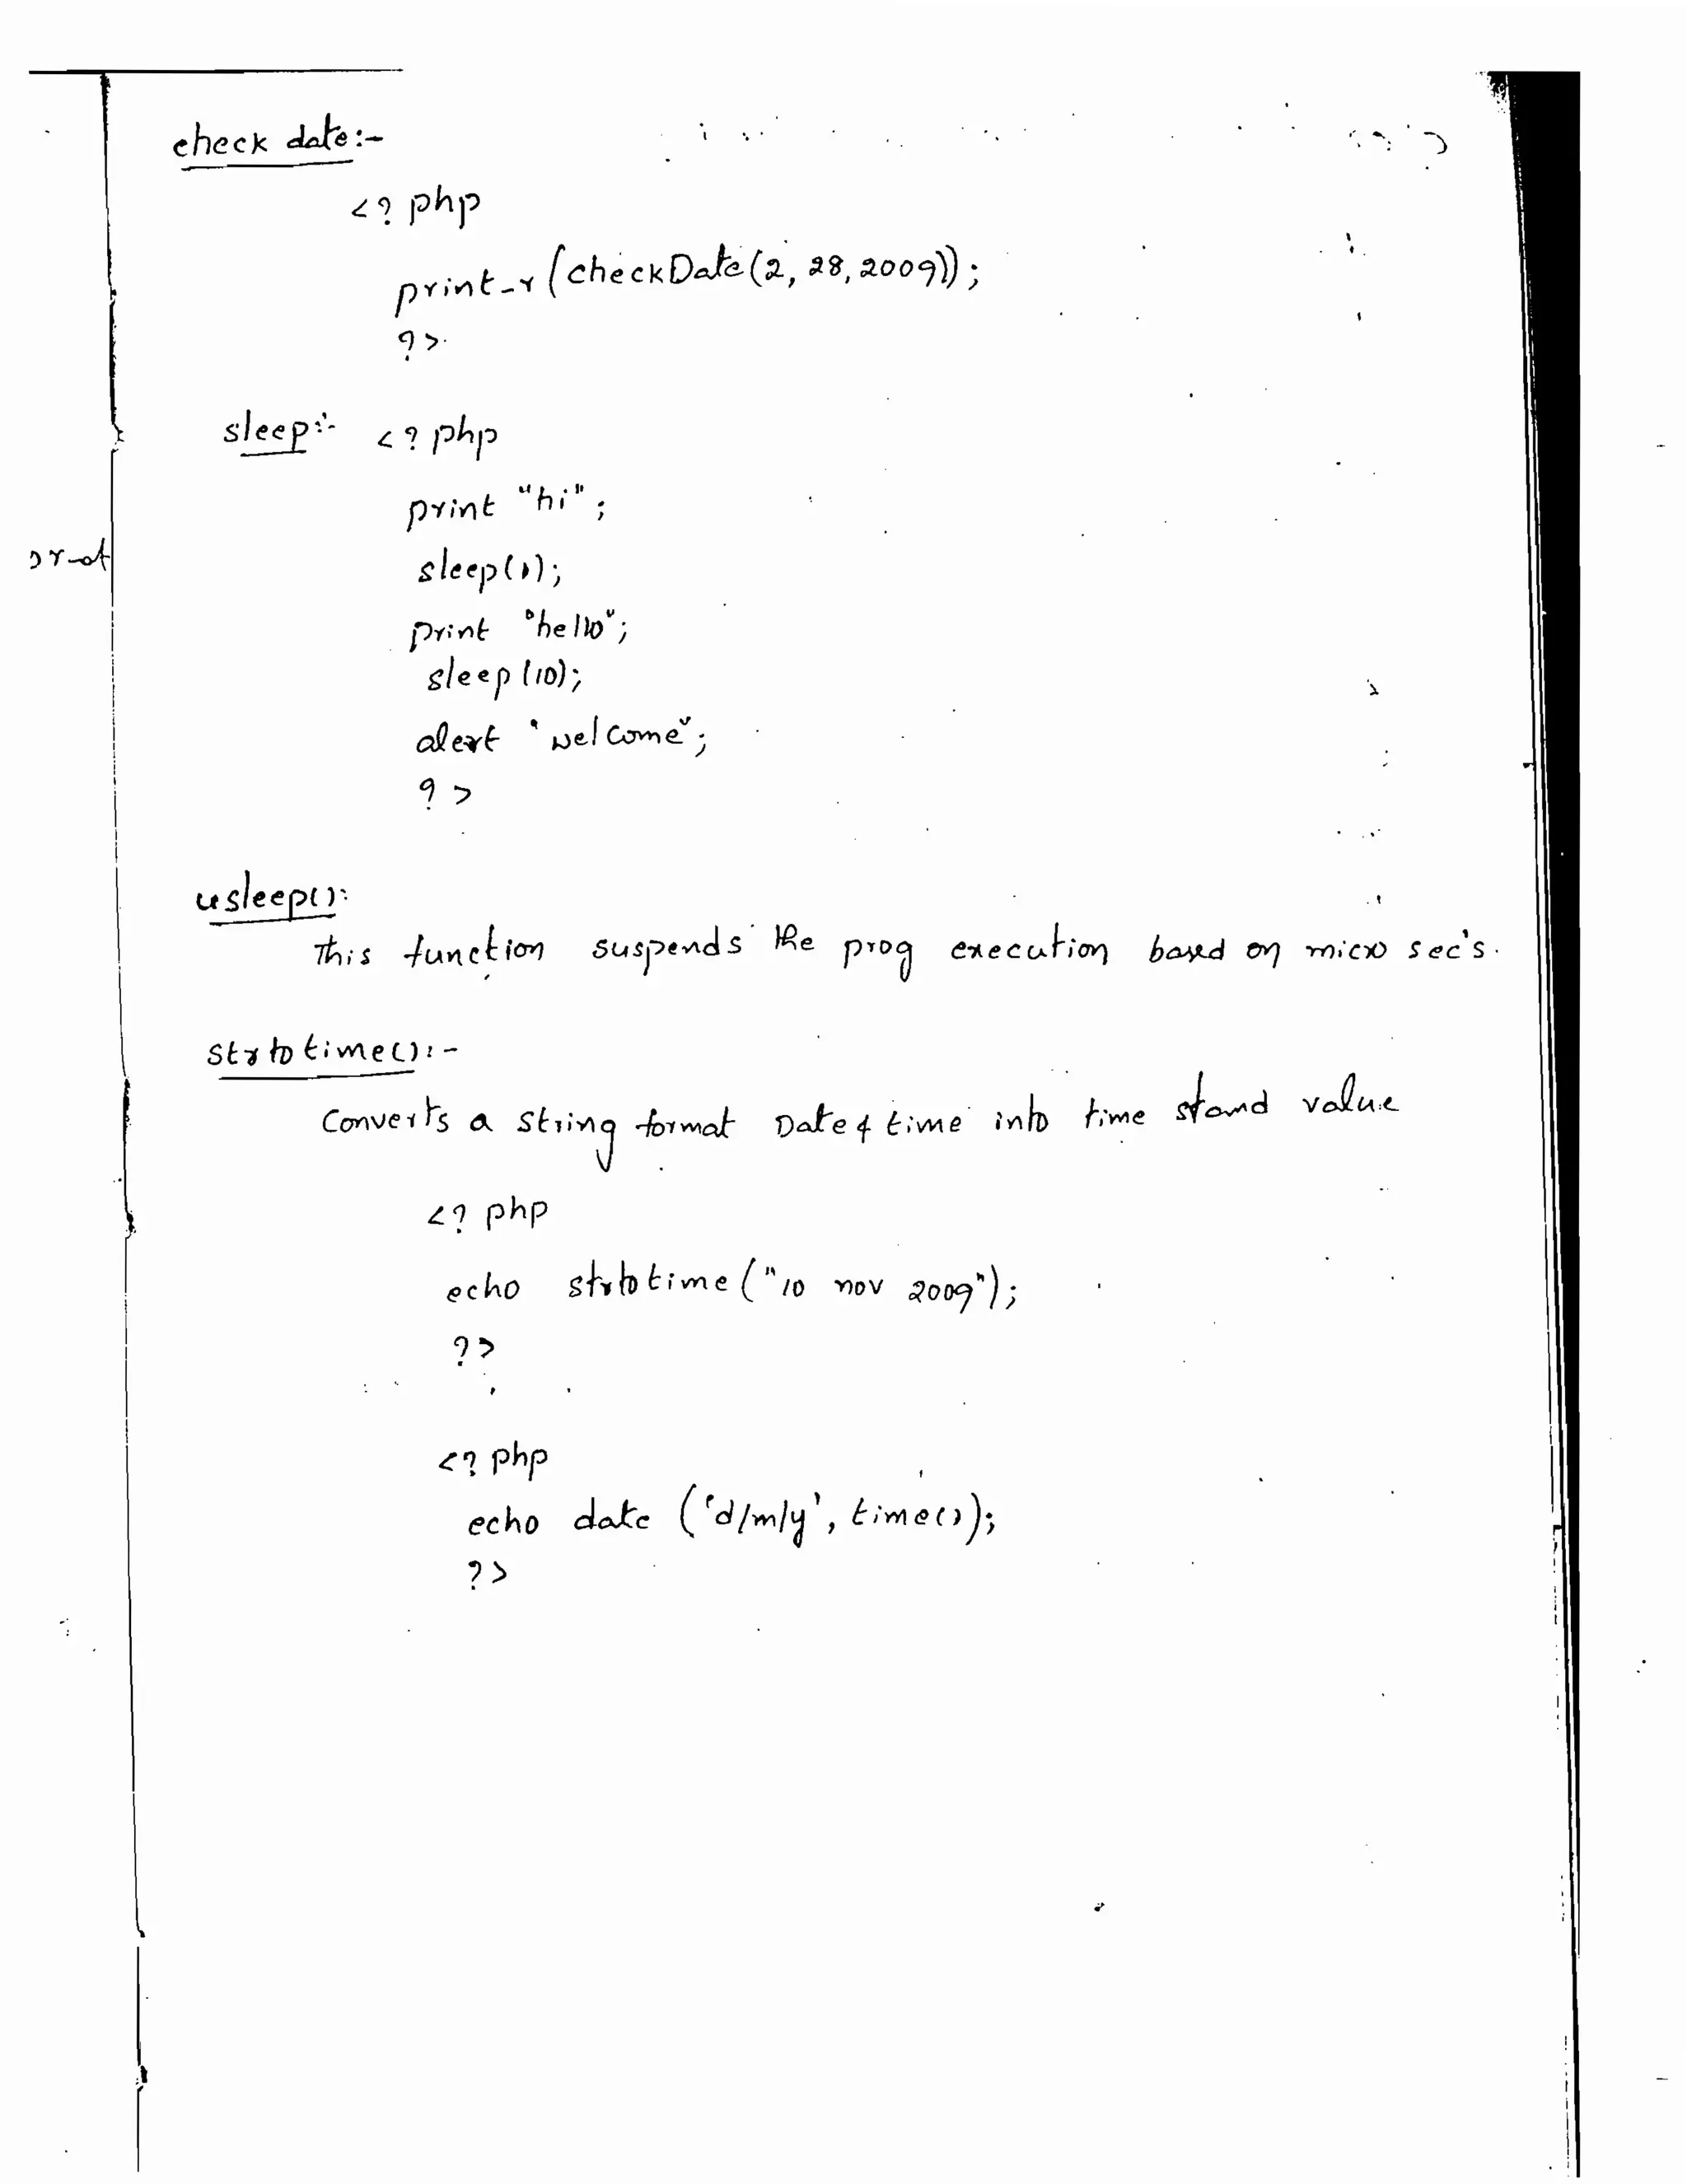 check date:-
<? php
print_r (checkDate(2, 28, 2009));
?>
sleep:- <? php
print "hi";
sleep(1);
print "hello";
sleep(10);
alert "welcome";
? >
usleep():
This function suspends the prog execution based on micro sec's.
strtotime():-
Converts a string format Date & time into time stamd value
<? php
echo strtotime ("10 nov 2009");
?>
<? php
echo date ('d/m/y', time());
?>